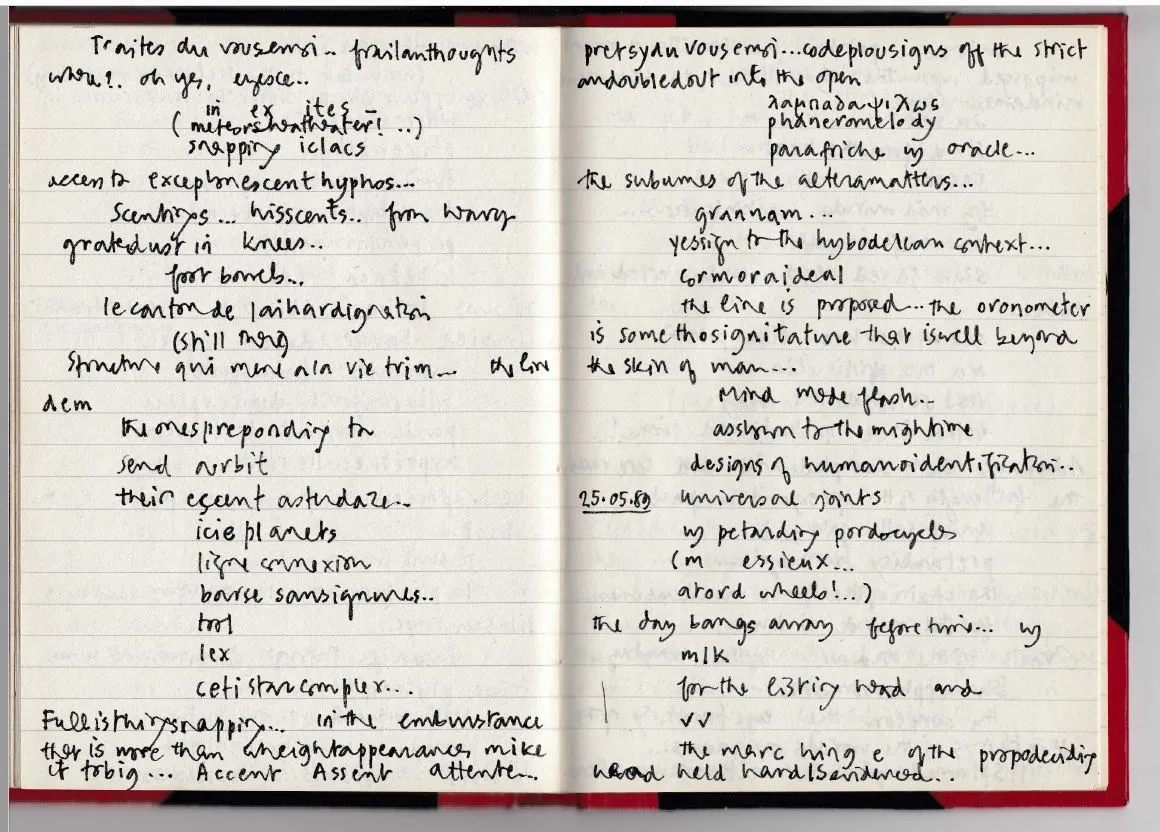 Traites du vousemsi.. frailanthoughts
where?. oh yes, eyesce..
in ex ites
(meteorsheatheater! ..)
snapping iclacs
access to excephonescent hyphos...
Scentings... hisscents.. from wavy
gratedust in knees..
foot bowels...
le canton de laihardignation
(still there)
Structure qui mene a la vie trim... the line
dem
the ones preponding to
send aurbit
their escent astudaze..
icie planets
ligne connexion
barse sansignures..
tool
lex
ceti star complex...
Full is thingsnapping... in the embunstance
that is more than wheightappearances mike
it tobig... Accent Assent attente...
pretsyduvousemsi...codeplousigns off the strict
andoubledout into the open
λαμπαδαψιχως
phaneromelody
parafriche w oracle...
the subumes of the alteramatters...
grannam...
yessign to the hybodelean context...
cormoraideal
the line is proposed...the oronometer
is somethosignitature that iswell beyond
the skin of man...
Mind mode flash..
asshown to the mightime
designs of humanoidentification..
25.05.89 universal joints
w petarding pordocycles
(m essieux...
atord wheels!..)
the day bangs array before time... w
mlk
for the listing head and
vv
the marc hing e of the propodeciding
head held hard|Sevidenced..